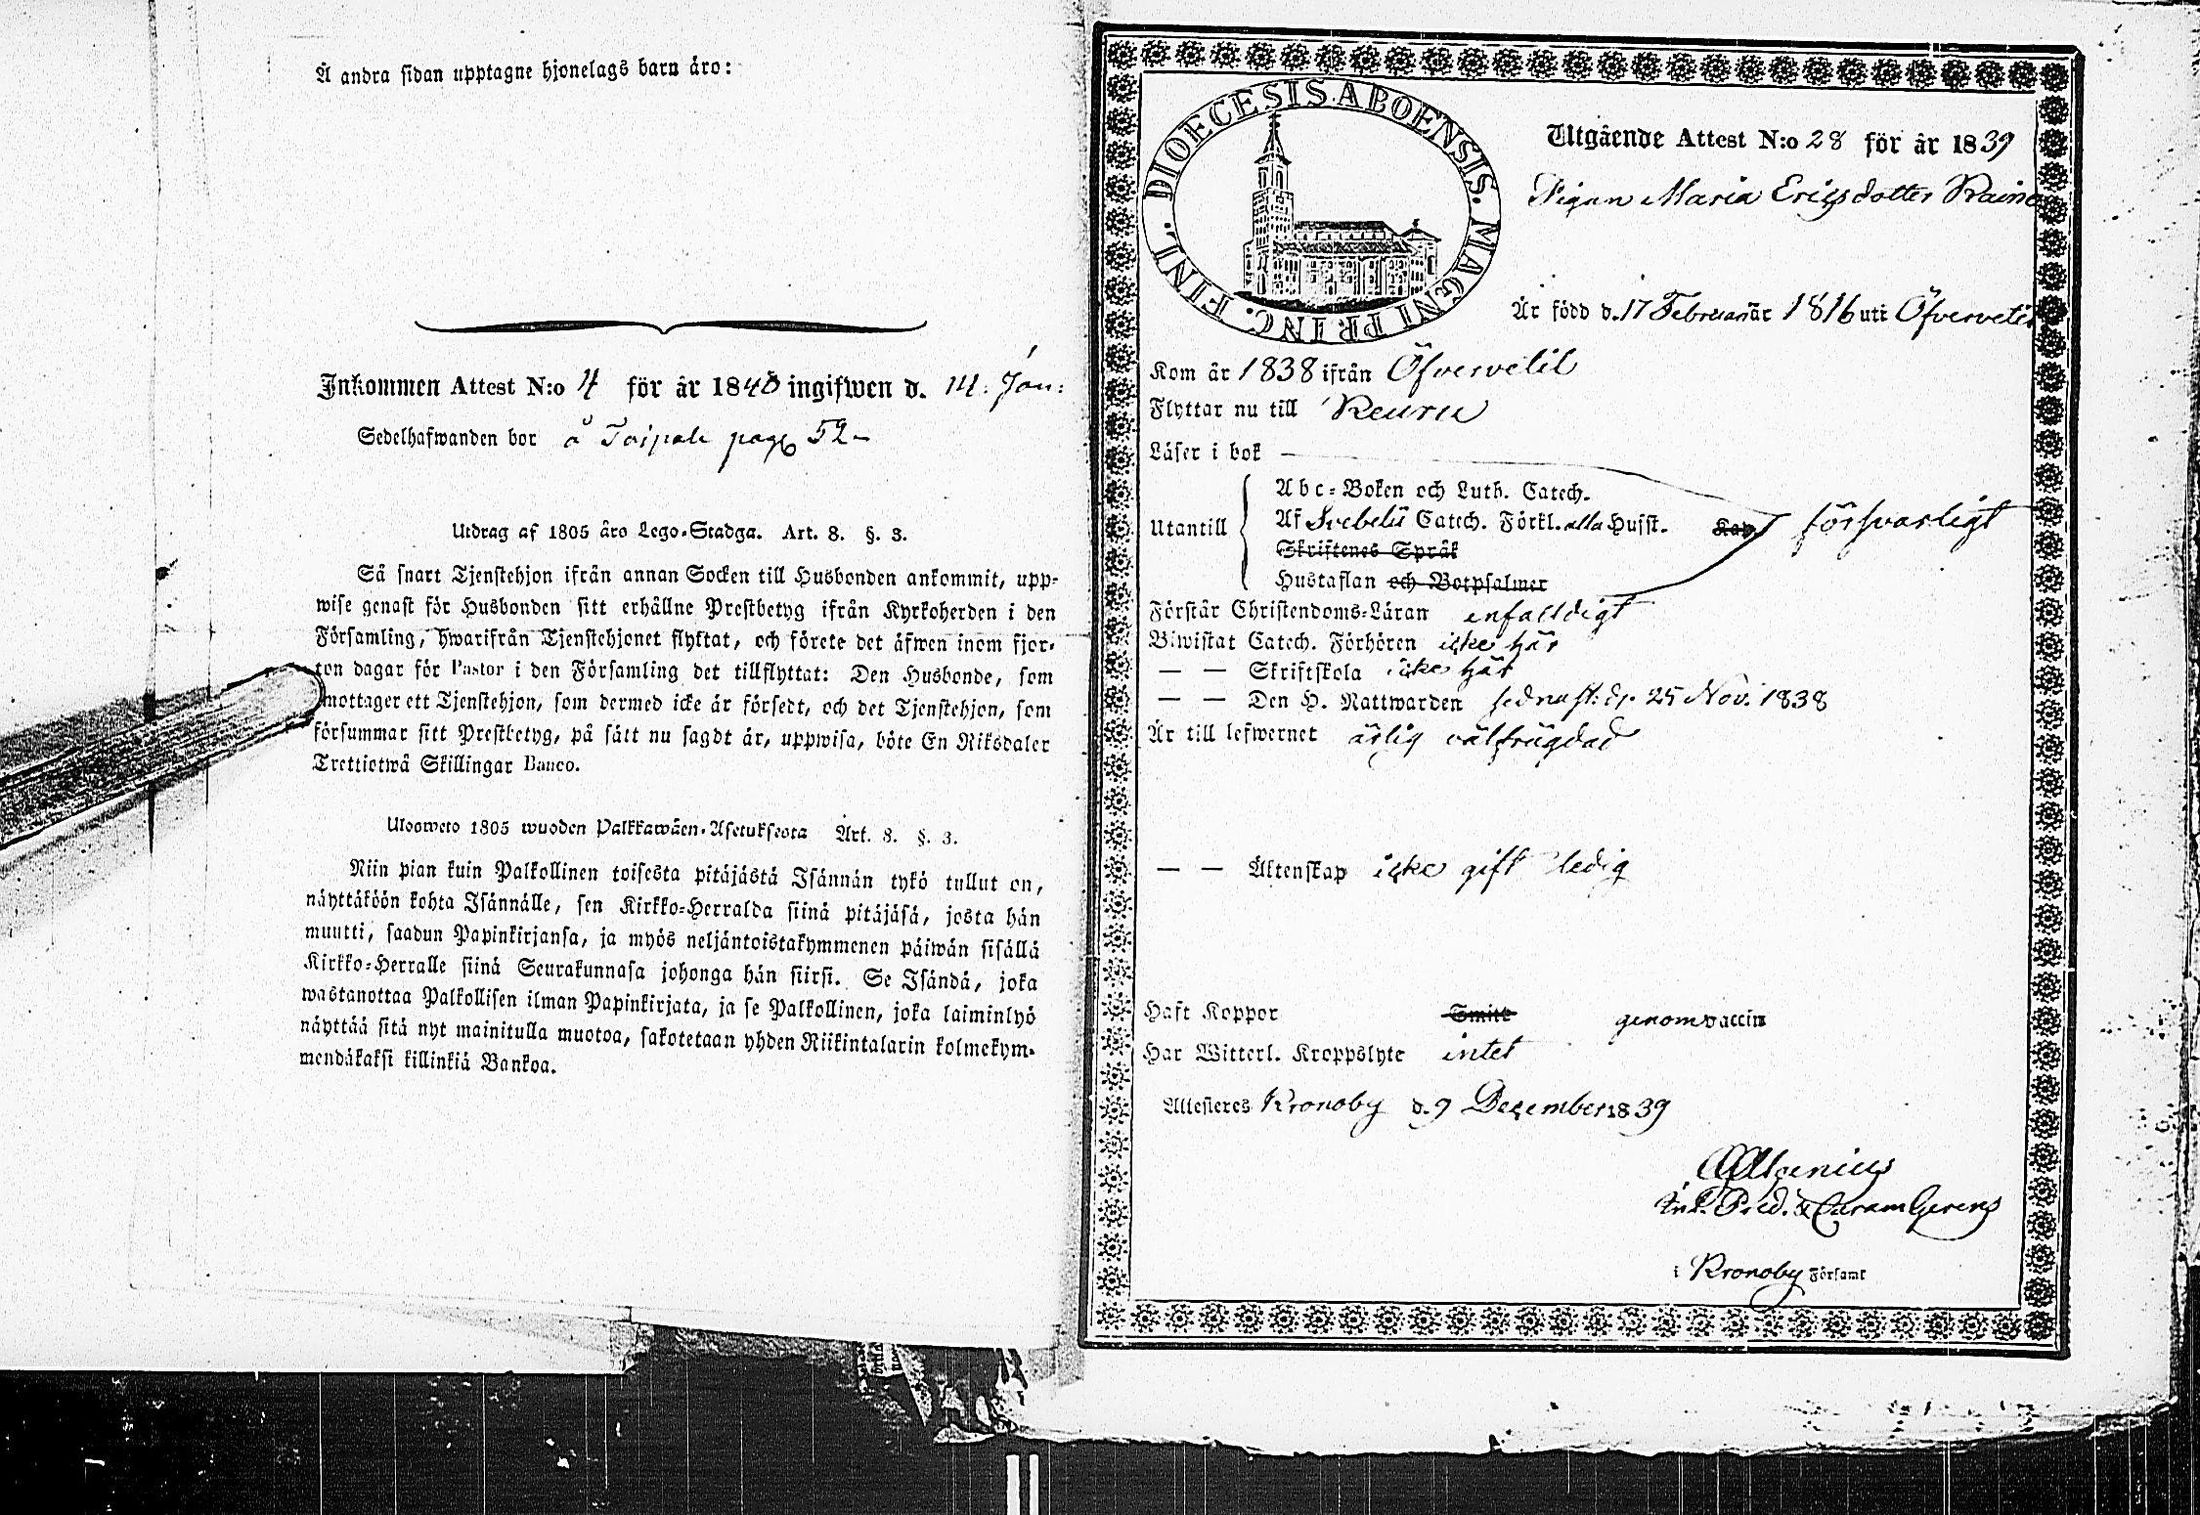 Å andra sidan upptagne hjonelags barn äro:
Inkommen Attest N:o 4 för år 1840 ingifwen d. 14. Jan:
Sedelhafwanden bor å Taipale pag 52
Utdrag af 1805 års Lego-Stadga. Art. 8. §. 3.
Så snart Tjenstehjon ifrån annan Socken till Husbonden ankommit, upp-
wise genast för Husbonden sitt erhållne Prestbetyg ifrån Kyrkoherden i den
Församling, hwarifrån Tjenstehjonet flyktat, och förete det äfwen inom fjor-
ton dagar för Pastor i den Församling det tillflyttat: Den Husbonde, som
mottager ett Tjenstehjon, som dermed icke är försedt, och det Tjenstehjon, som
försummar sitt Prestbetyg, på sätt nu sagdt är, uppwisa, böte En Riksdaler
Trettiotwå Skillingar Banco.
Ulosweto 1805 wuoden Palkkawäen-Asetuksesta Art. 8. §. 3.
Niin pian kuin Palkollinen toisesta pitäjästä Isännän tykö tullut on,
näyttäköön kohta Isännälle, sen Kirkko-Herralda siinä pitäjäsä, josta hän
muutti, saadun Papinkirjansa, ja myös neljäntoistakymmenen päiwän sisällä
Kirkko-Herralle siinä Seurakunnasa johonga hän siirsi. Se Isändä, joka
wastanottaa Palkollisen ilman Papinkirjata, ja se Palkollinen, joka laiminlyö
näyttää sitä nyt mainitulla muotoa, sakotetaan yhden Riikintalarin kolmekym-
mendäkaksi killinkiä Bankoa.
DIOECESIS ABOENSIS. MAGNI PRINC. FINL.
Utgående Attest N:o 28 för år 1839
Pigan Maria Ericsdotter Raino
Är född d. 17 Februari år 1816 uti Öfvervetil
Kom år 1838 ifrån Öfvervetil
Flyttar nu till Keuru
Läser i bok
Utantill
Abc-Boken och Luth. Catech.
Af Svebelii Catech. Förkl. alla Hufst. Kap. försvarligt
Skriftenes Språk
Hustaflan och Botpsalmer
Förstår Christendoms-Läran enfalldigt
Biwistat Catech. Förhören icke här
— — Skriftskola icke här
— — Den H. Nattwarden sednast: d. 25 Nov. 1838
Är till lefwernet ärlig välfrägdad
— — Äktenskap icke gift ledig
Haft Koppor Smitt genom vaccin
Har Witterl. Kroppslyte intet
Attesteres Kronoby d. 9 December 1839
Pred. & Curam Gerens
i Kronoby Församl